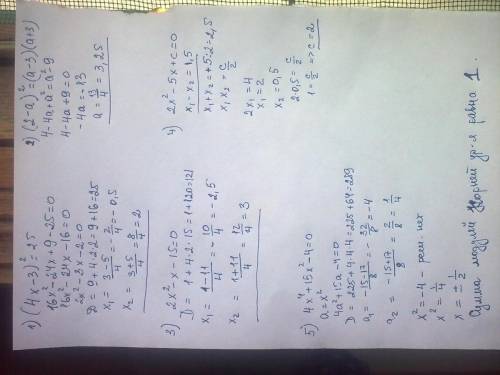 1) (4x-3)² = 25
16x² - 24x + 9 - 25 = 0
16x² - 24x - 16 = 0
2x² - 3x - 2 = 0
D = 9 + 4·2·2 = 9 + 16 = 25
x₁ = (3-5)/4 = -2/4 = -0,5
x₂ = (3+5)/4 = 8/4 = 2
2) (2-a)² = (a-3)(a+3)
4 - 4a + a² = a² - 9
4 - 4a + 9 = 0
-4a = -13
a = 13/4 = 3,25
3) 2x² - x - 15 = 0
D = 1 + 4·2·15 = 1 + 120 = 121
x₁ = (1-11)/4 = -10/4 = -2,5
x₂ = (1+11)/4 = 12/4 = 3
4) 2x² - 5x + c = 0
x₁ - x₂ = 1,5
x₁ + x₂ = +5:2 = 2,5
x₁x₂ = c/2
2x₁ = 4
x₁ = 2
x₂ = 0,5
2·0,5 = c/2
1 = c/2 => c = 2
5) 4x⁴ + 15x² - 4 = 0
a = x²
4a² + 15a - 4 = 0
D = 225 + 4·4·4 = 225 + 64 = 289
a₁ = (-15-17)/8 = -32/8 = -4
a₂ = (-15+17)/8 = 2/8 = 1/4
x² = -4 - реш. нет
x² = 1/4
x = ± 1/2
Сумма модулей корней ур-я равна 1.